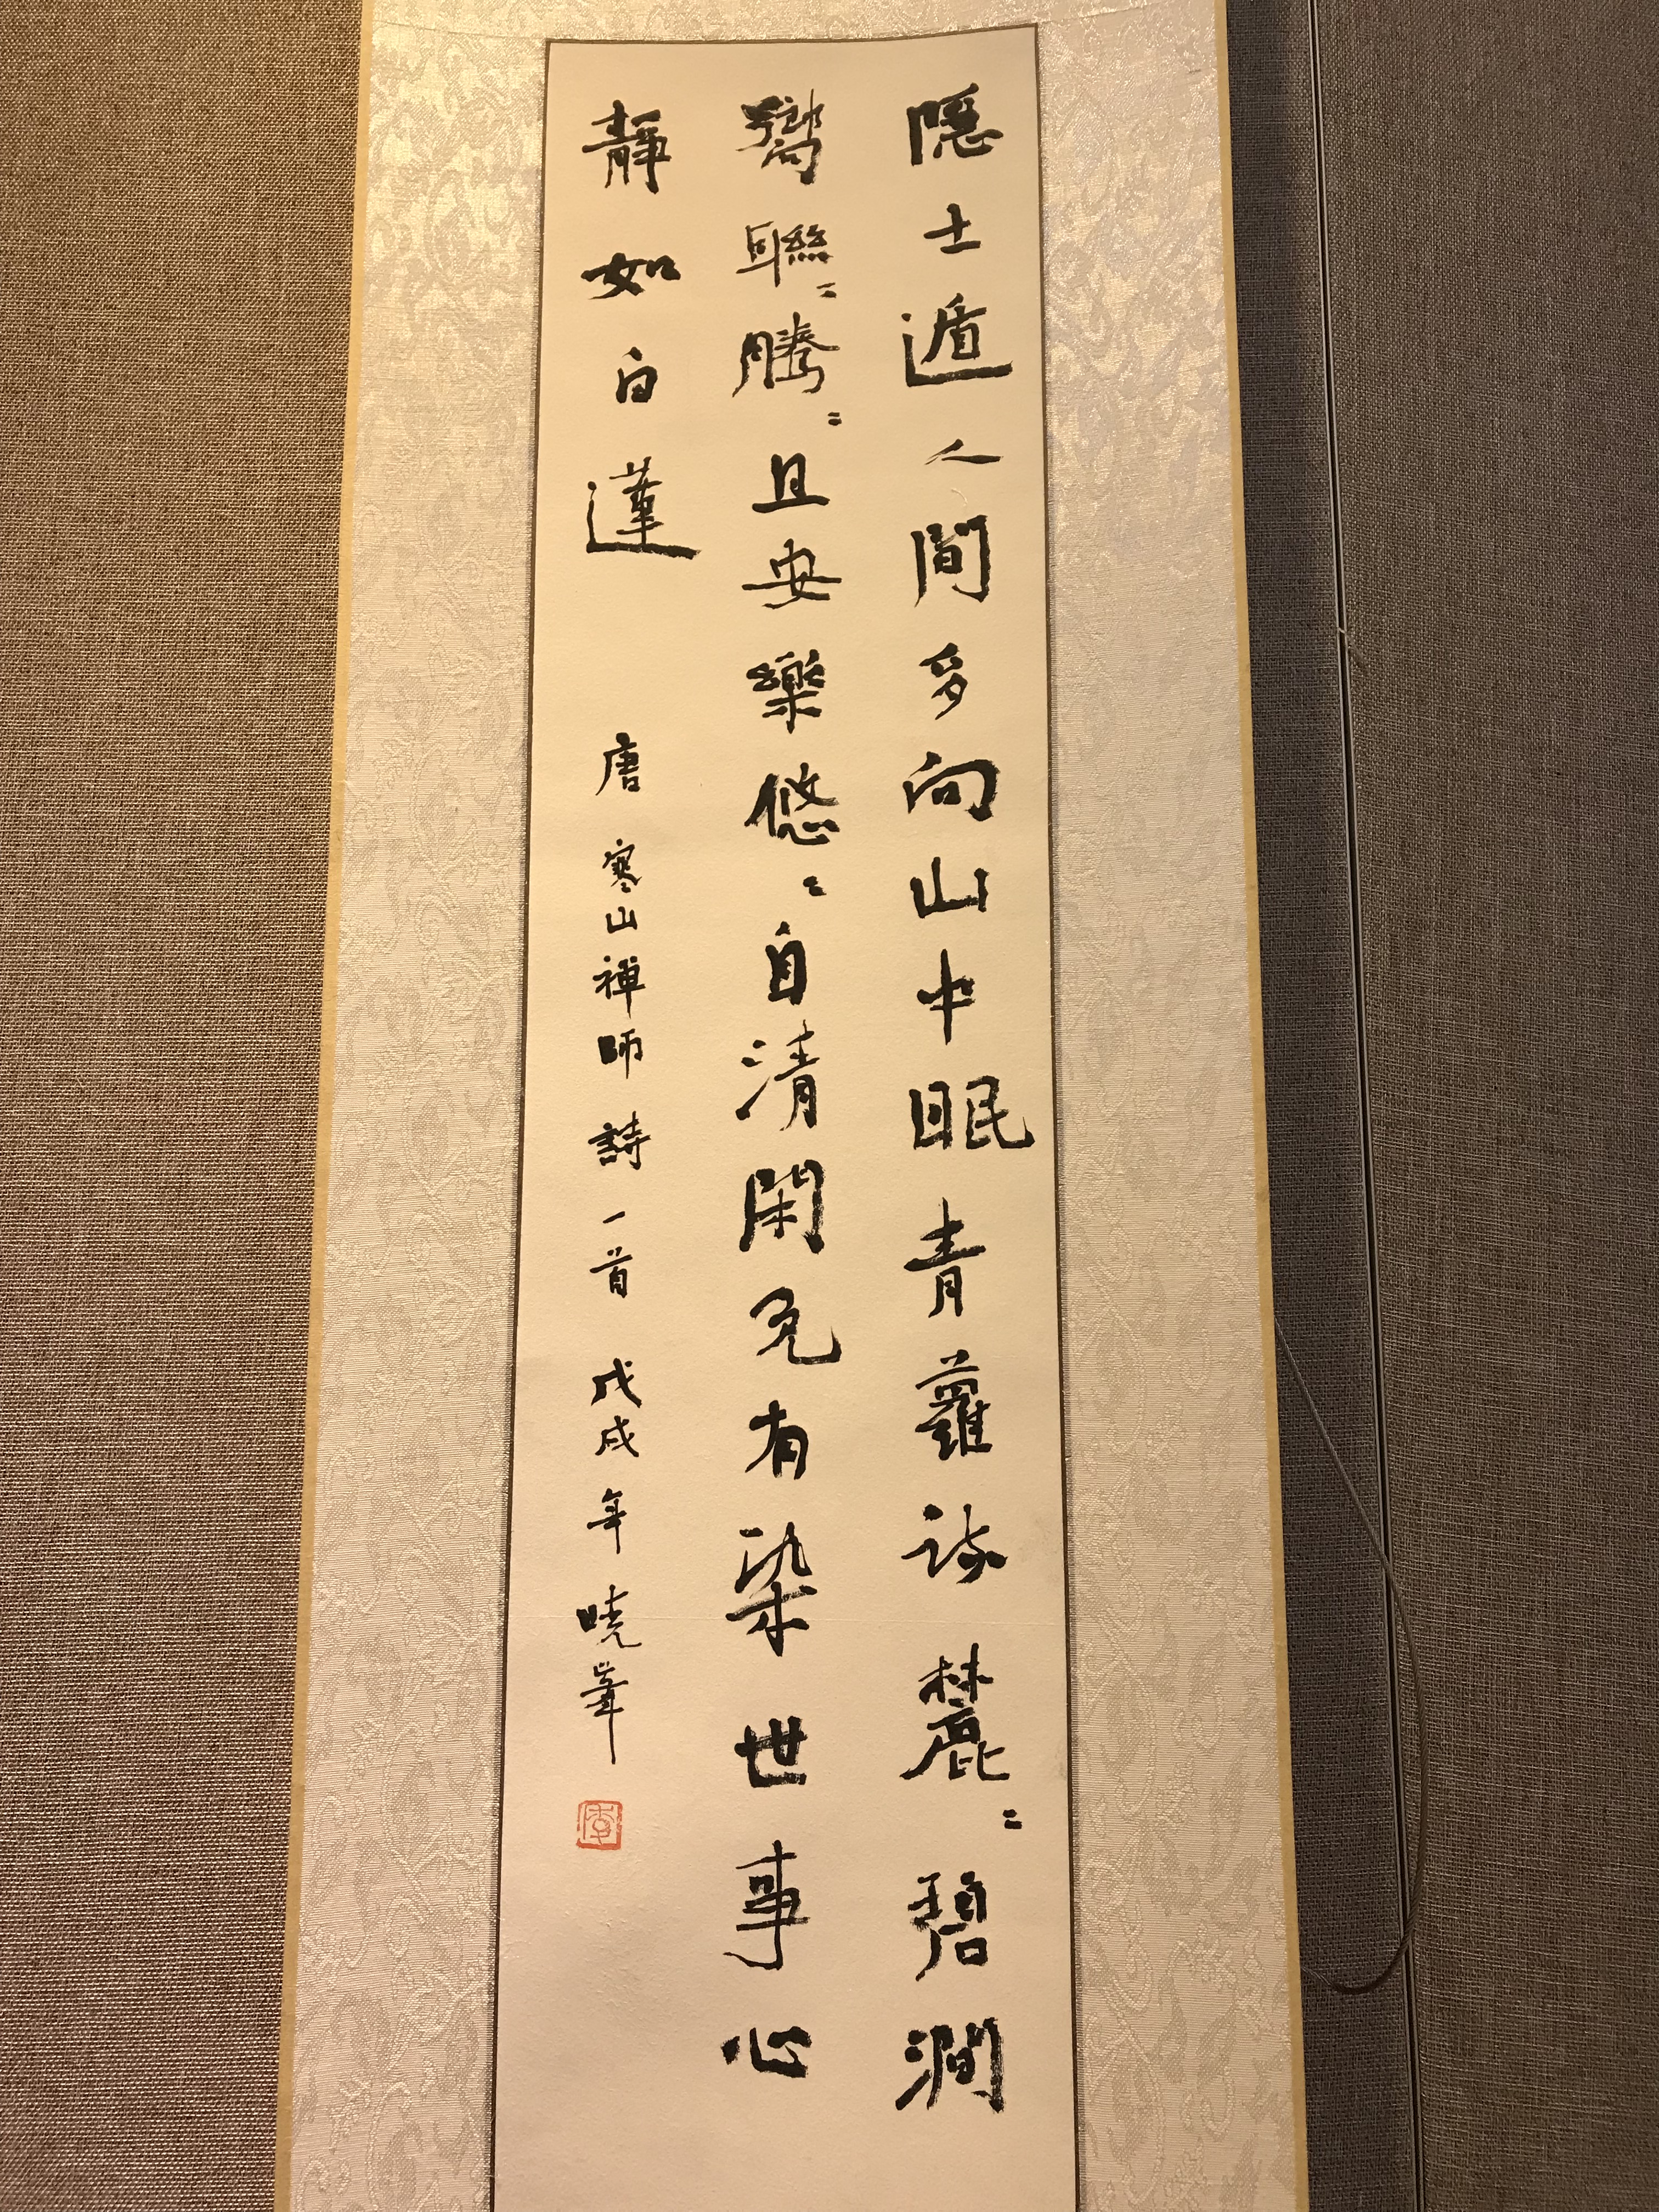 隱士遁人間多向山中眠青蘿疎麓〻碧澗
響聯〻騰〻且安樂悠〻自清閑免有染世事心
靜如白蓮 唐寒山禪師詩一首 戊戌年曉峯
李